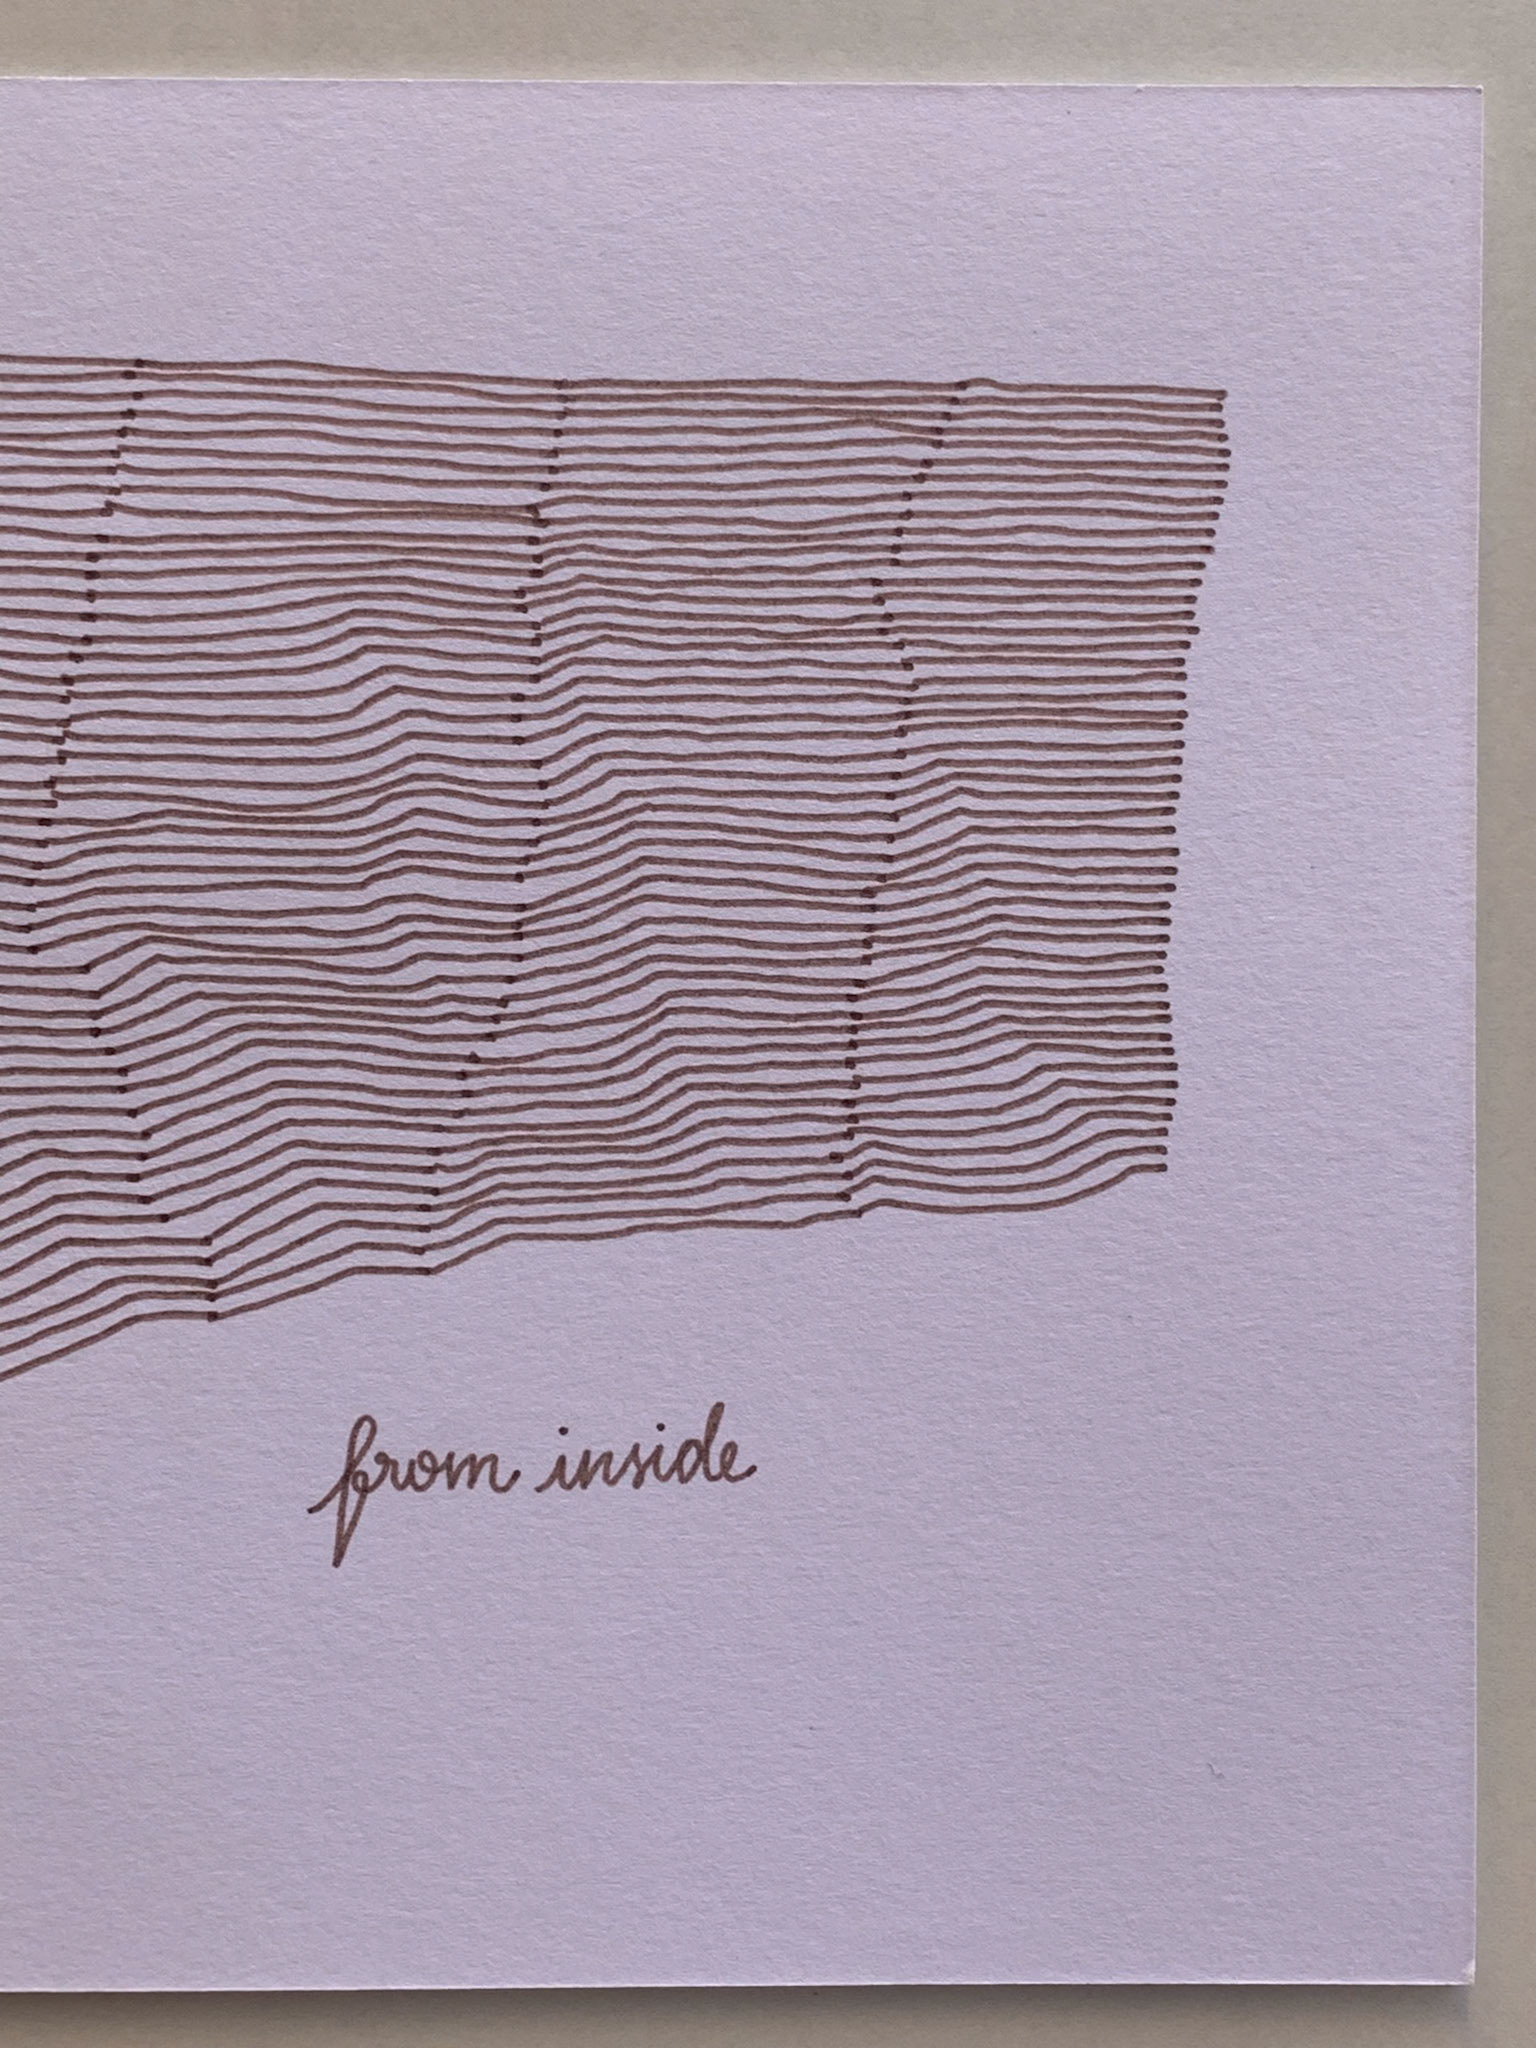 from inside